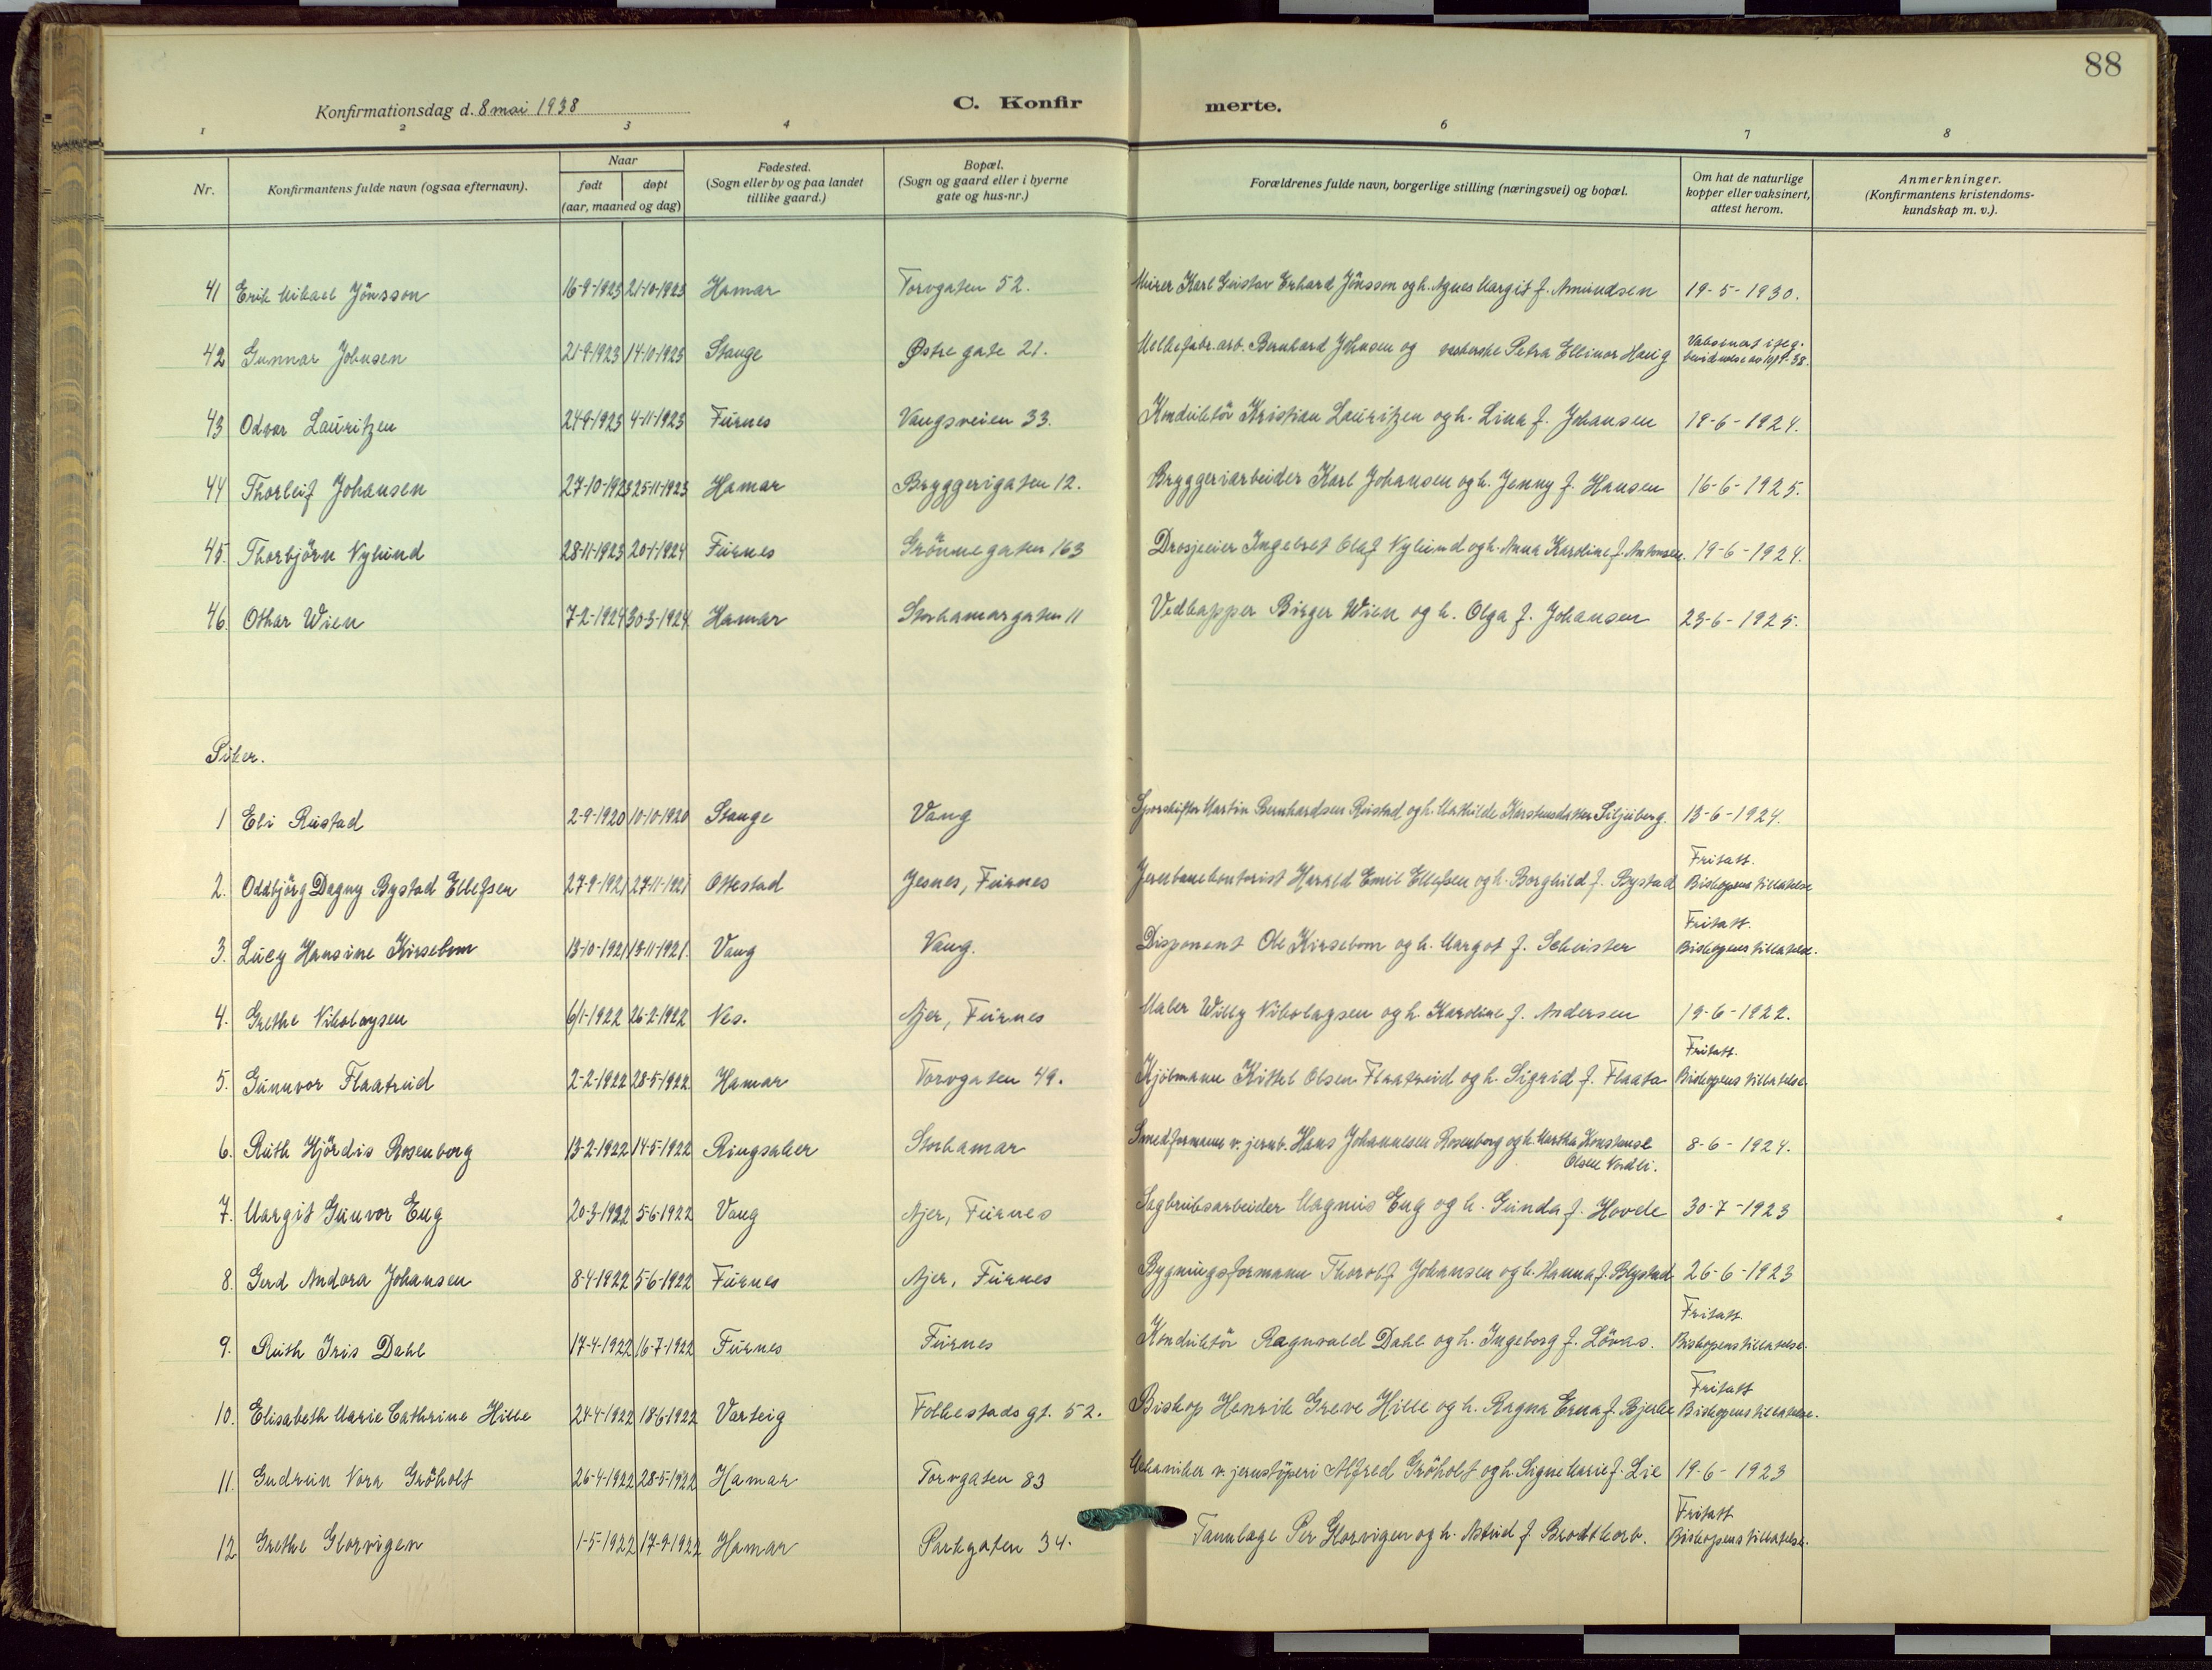 88
Konfirmationsdag d. 8 mai 1938
C. Konfirmerte.
1 2 3 4 6 7 8
Nr.
Konfirmantens fulde navn (ogsaa efternavn).
Naar
født døpt
(aar, maaned og dag)
Fødested.
(Sogn eller by og paa landet
tillike gaard.)
Bopæl.
(Sogn og gaard eller i byerne
gate og hus-nr.)
Forældrenes fulde navn, borgerlige stilling (næringsvei) og bopæl.
Om hat de naturlige
kopper eller vaksinert,
attest herom.
Anmerkninger.
(Konfirmantens kristendoms-
kundskap m. v.).
41 Erik Mikael Jönsson 16-9-1923 21-10-1923 Hamar Torvgaten 52. Murer Karl Gustav Erhard Jönsson og h. Agnes Margit f. Amundsen 19-5-1930.
42 Gunnar Johnsen 21-9-1923 14-10-1923 Stange Østre gate 21. Melkefabr. arb. Bernhard Johnsen og Petra Ellinor Haug Vaksinert
43 Odvar Lauritzen 24-9-1923 4-11-1923 Furnes Vangsveien 33. Konduktör Kristian Lauritzen og h. Lina f. Johansen 19-6-1924.
44 Thorleif Johansen 27-10-1923 25-11-1923 Hamar Bryggerigaten 12. Bryggeriarbeider Karl Johansen og h. Jenny f. Hansen 16-6-1925.
45. Thorbjörn Nylund 28-11-1923 20-1-1924 Furnes Grönnegaten 163 Drosjeeier Ingebret Olaf Nylund og h. Anna Karoline f. Antonsen. 19-6-1924.
46. Othar Wien 7-2-1924 30-3-1924 Hamar Storhamargaten 11 Vedkapper Birger Wien og h. Olga f. Johansen 23-6-1925.
Piker.
1 Eli Rustad 2-9-1920 10-10-1920 Stange Vang Sporskifter Martin Bernhardsen Rustad og h. Mathilde Karstensdatter Siljuberg. 13-6-1924.
2. Oddbjörg Dagny Bystad Ellefsen 27-9-1921 27-11-1921 Ottestad Jesnes, Furnes Jernbanekontorist Harald Emil Ellefsen og h. Borghild f. Bystad Fritatt. Biskopens tillatelse
3. Lucy Hansine Kirsebom 13-10-1921 13-11-1921. Vang Vang. Disponent Ole Kirsebom og h. Margot f. Fritatt. Biskopens tillatelse.
4. Grethe Nikolaysen 6/1-1922 26-2-1922 Nes. Ajer, Furnes Maler Willy Nikolaysen og h. Karoline f. Andersen 19-6-1922.
5. Gunnvor Flaatrud 2-2-1922 28-5-1922 Hamar Torvgaten 49. Kjölmann Kittel Olsen Flaatrud og h. Sigrid f. Flaata Fritatt. Biskopens tillatelse
6. Ruth Hjördis Rosenborg 13-2-1922 14-5-1922 Ringsaker Storhamar Smedformann v. jernb. Hans Johannesen Rosenborg og h. Martha Konstanse 8-6-1924.
Olsen Nordli.
7. Margit Gunvor Eng 20-3-1922 5-6-1922 Vang Ajer, Furnes Sagbruksarbeider Magnus Eng og h. Gunda f. Hovde 30-7-1923
8. Gerd Andora Johansen 8-4-1922 5-6-1922 Furnes Ajer, Furnes Bygningsformann Thorolf Johansen og h. Hanna f. Blystad 26-6-1923
9. Ruth Iris Dahl 17-4-1922 16-7-1922 Furnes Furnes Konduktör Ragnvald Dahl og h. Ingeborg f. Lövås. Fritatt. Biskopens tillatelse.
10. Elisabeth Marie Cathrine Hille 24-4-1922 18-6-1922 Varteig Folkestads gt. 52. Biskop Henrik Greve Hille og h. Ragna Erna f. Bjerke Fritatt Biskopens tillatelse.
11. Gudrun Nora Gröholt 26-4-1922 28-5-1922 Hamar Torvgaten 83 Mekaniker v. jernstöperi Alfred Gröholt og h. Signe Marie f. Lie 19-6-1923
12 Grethe Glorvigen 1-5-1922 17-9-1922 Hamar Parkgaten 34. Tannlæge Per Glorvigen og h. Astrid f. Brodtkorb. Fritatt Biskopens tillatelse.